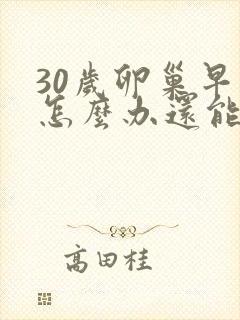 30歲卵巢早
怎麼办還能
高田桂